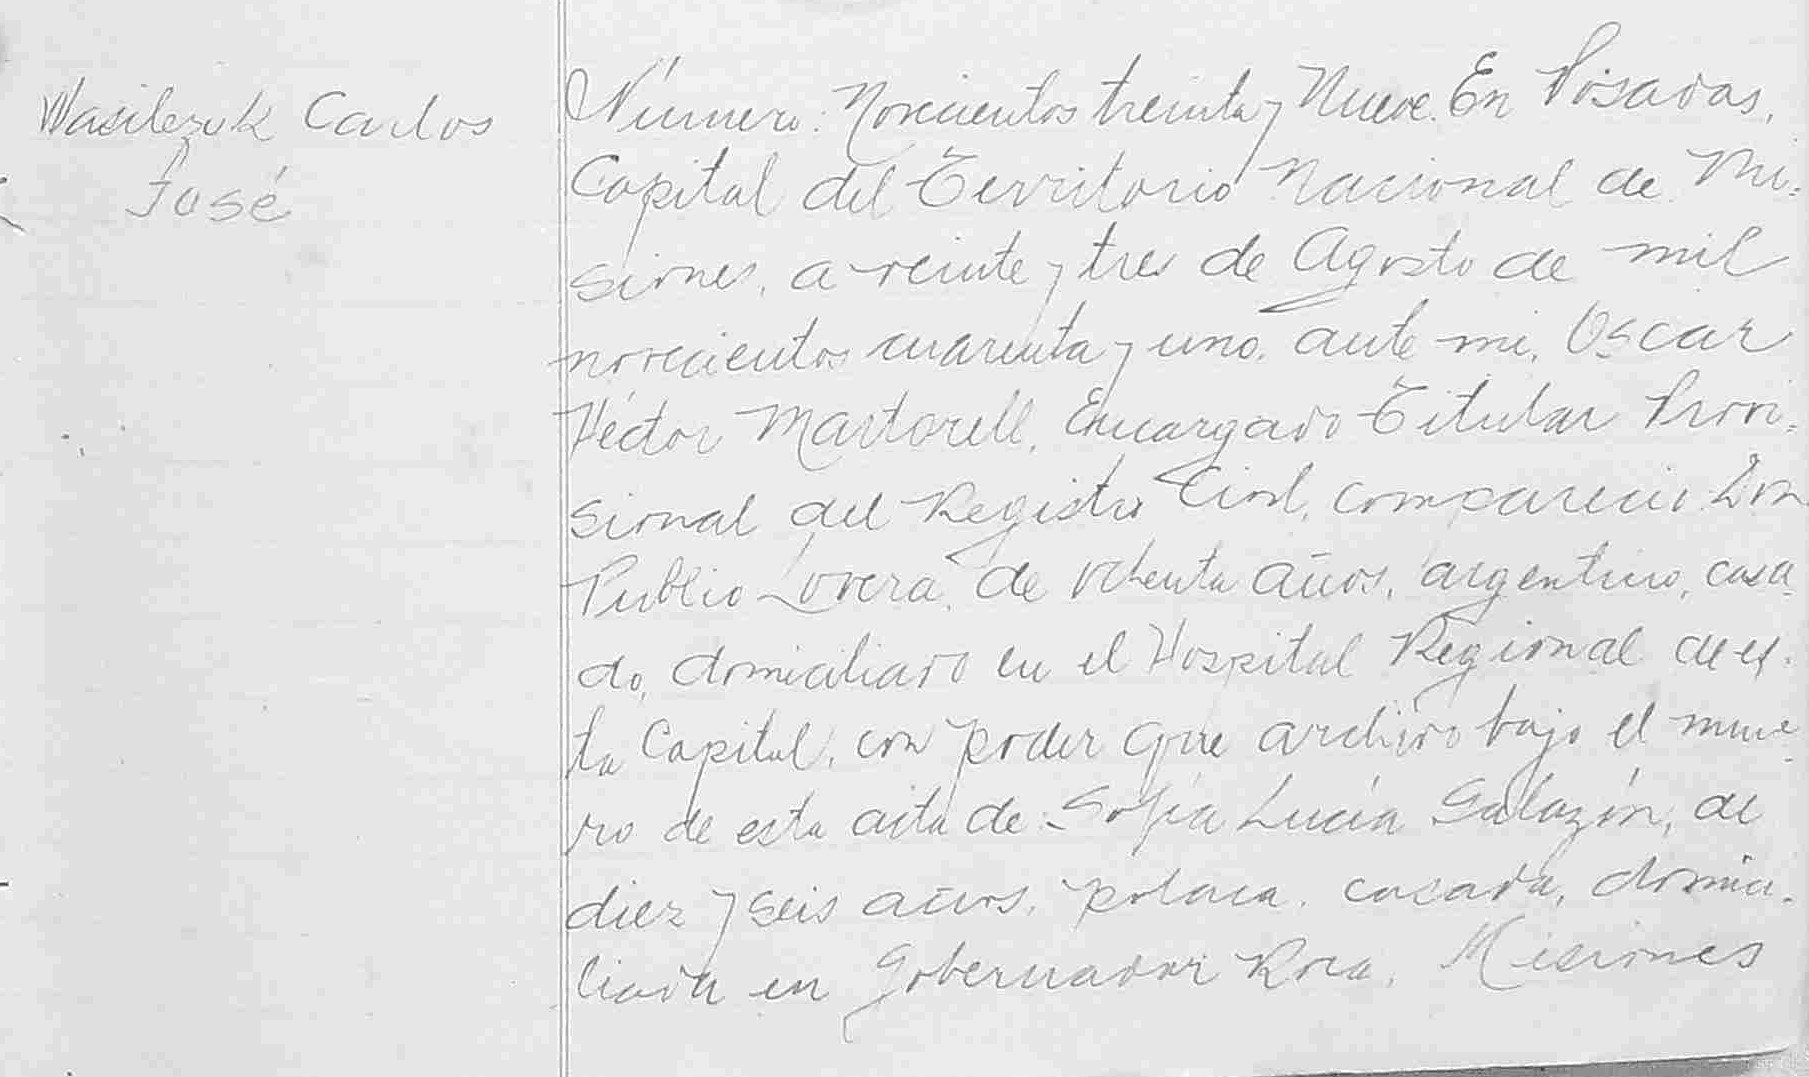 Wasilczuk Carlos
José
Número: Novecientos treinta y Nueve. En Posadas,
Capital del Territorio Nacional de Mi=
siones, a veinte y tres de Agosto de mil
novecientos cuarenta y uno, ante mi, Oscar
Héctor Martorell, Encargado Titular Provi=
sional del Registro Civil, compareció Don
Publio Lovera, de ochenta años, argentino, casa
do, domiciliado en el Hospital Regional de es=
ta Capital, con poder que archivo bajo el núme
ro de esta acta de Sofía Lucía Galazin, de
diez y seis años, polaca, casada, domici=
liada en Gobernador Roca, Misiones